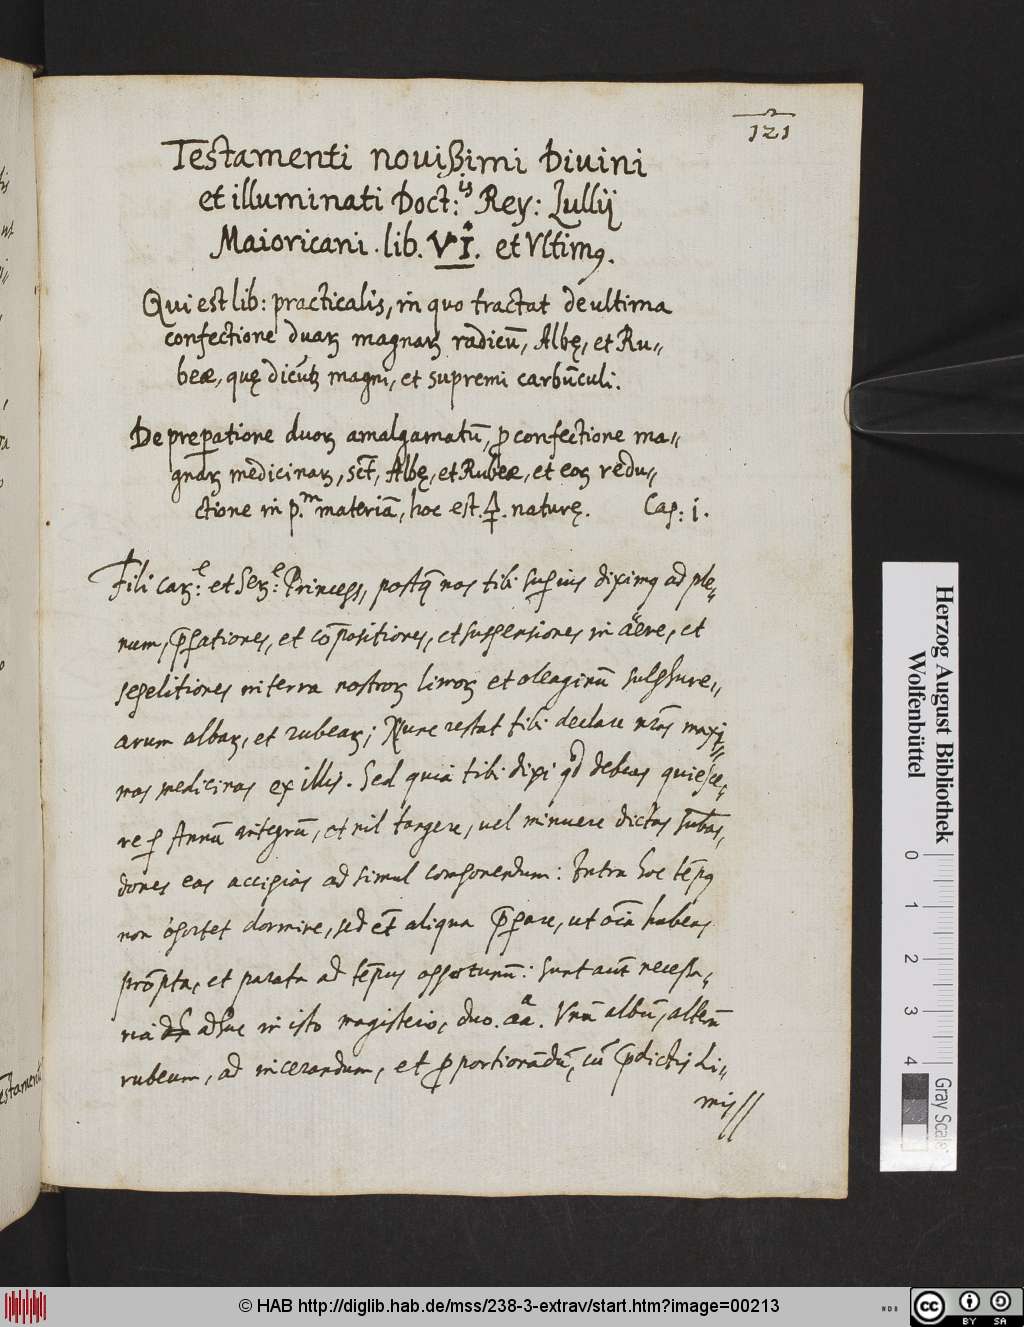 121
Testamenti novißimi Diuini
et illuminati Doct:is Rey: Lullij
Maioricani. lib. VI. et Vltimꝰ.
Qui est lib: practicalis, in quo tractat de ultima
confectione duaꝝ magnaꝝ radicū, Albę, et Ru-
beæ, quę dicūtꝝ magni, et supremi carbūculi.
De preꝑatione duoꝝ amalgamatū, ꝓ confectione ma-
gnaꝝ medicinaꝝ, sct̄, Albę, et Rubeæ, et eoꝝ redu-
ctione in p.m materiā, hoc est. 🜍. naturę. Cap: i.
Fili caꝝ:e et Seꝝ:e Princeps, postq̄ nos tibi suꝑius diximꝰ ad ple-
num, p̄ꝑationes, et cōpositiones, et suspensiones in aëre, et
sepelitiones in terra nostroꝝ limoꝝ et oleaginū sulphure-
arum albaꝝ, et rubeaꝝ; Nunc restat tibi declare nr̄as maxi-
mas medicinas ex illis. Sed quia tibi dixi qd̄ debeas quiesce-
re ꝑ Annū integrū, et nil tangere, vel minuere dictas subas,
donec eas accipias ad simul componendum: Intra hoc tēpꝰ
non oportet dormire, sed et̄ aliqua p̄ꝑare, ut oīa habeas
prōpta, et parata ad tēpus opportunū: sunt aūt necessa-
ria adhuc in isto magisterio, duo. aaa. Vnū albū, alterū
rubeum, ad incerandum, et ꝓportionādū, cū p̄dictis li-
mis
estamenti
Herzog August Bibliothek
Wolfenbüttel
0 1 2 3 4
Gray Scale
© HAB http://diglib.hab.de/mss/238-3-extrav/start.htm?image=00213
cc BY SA